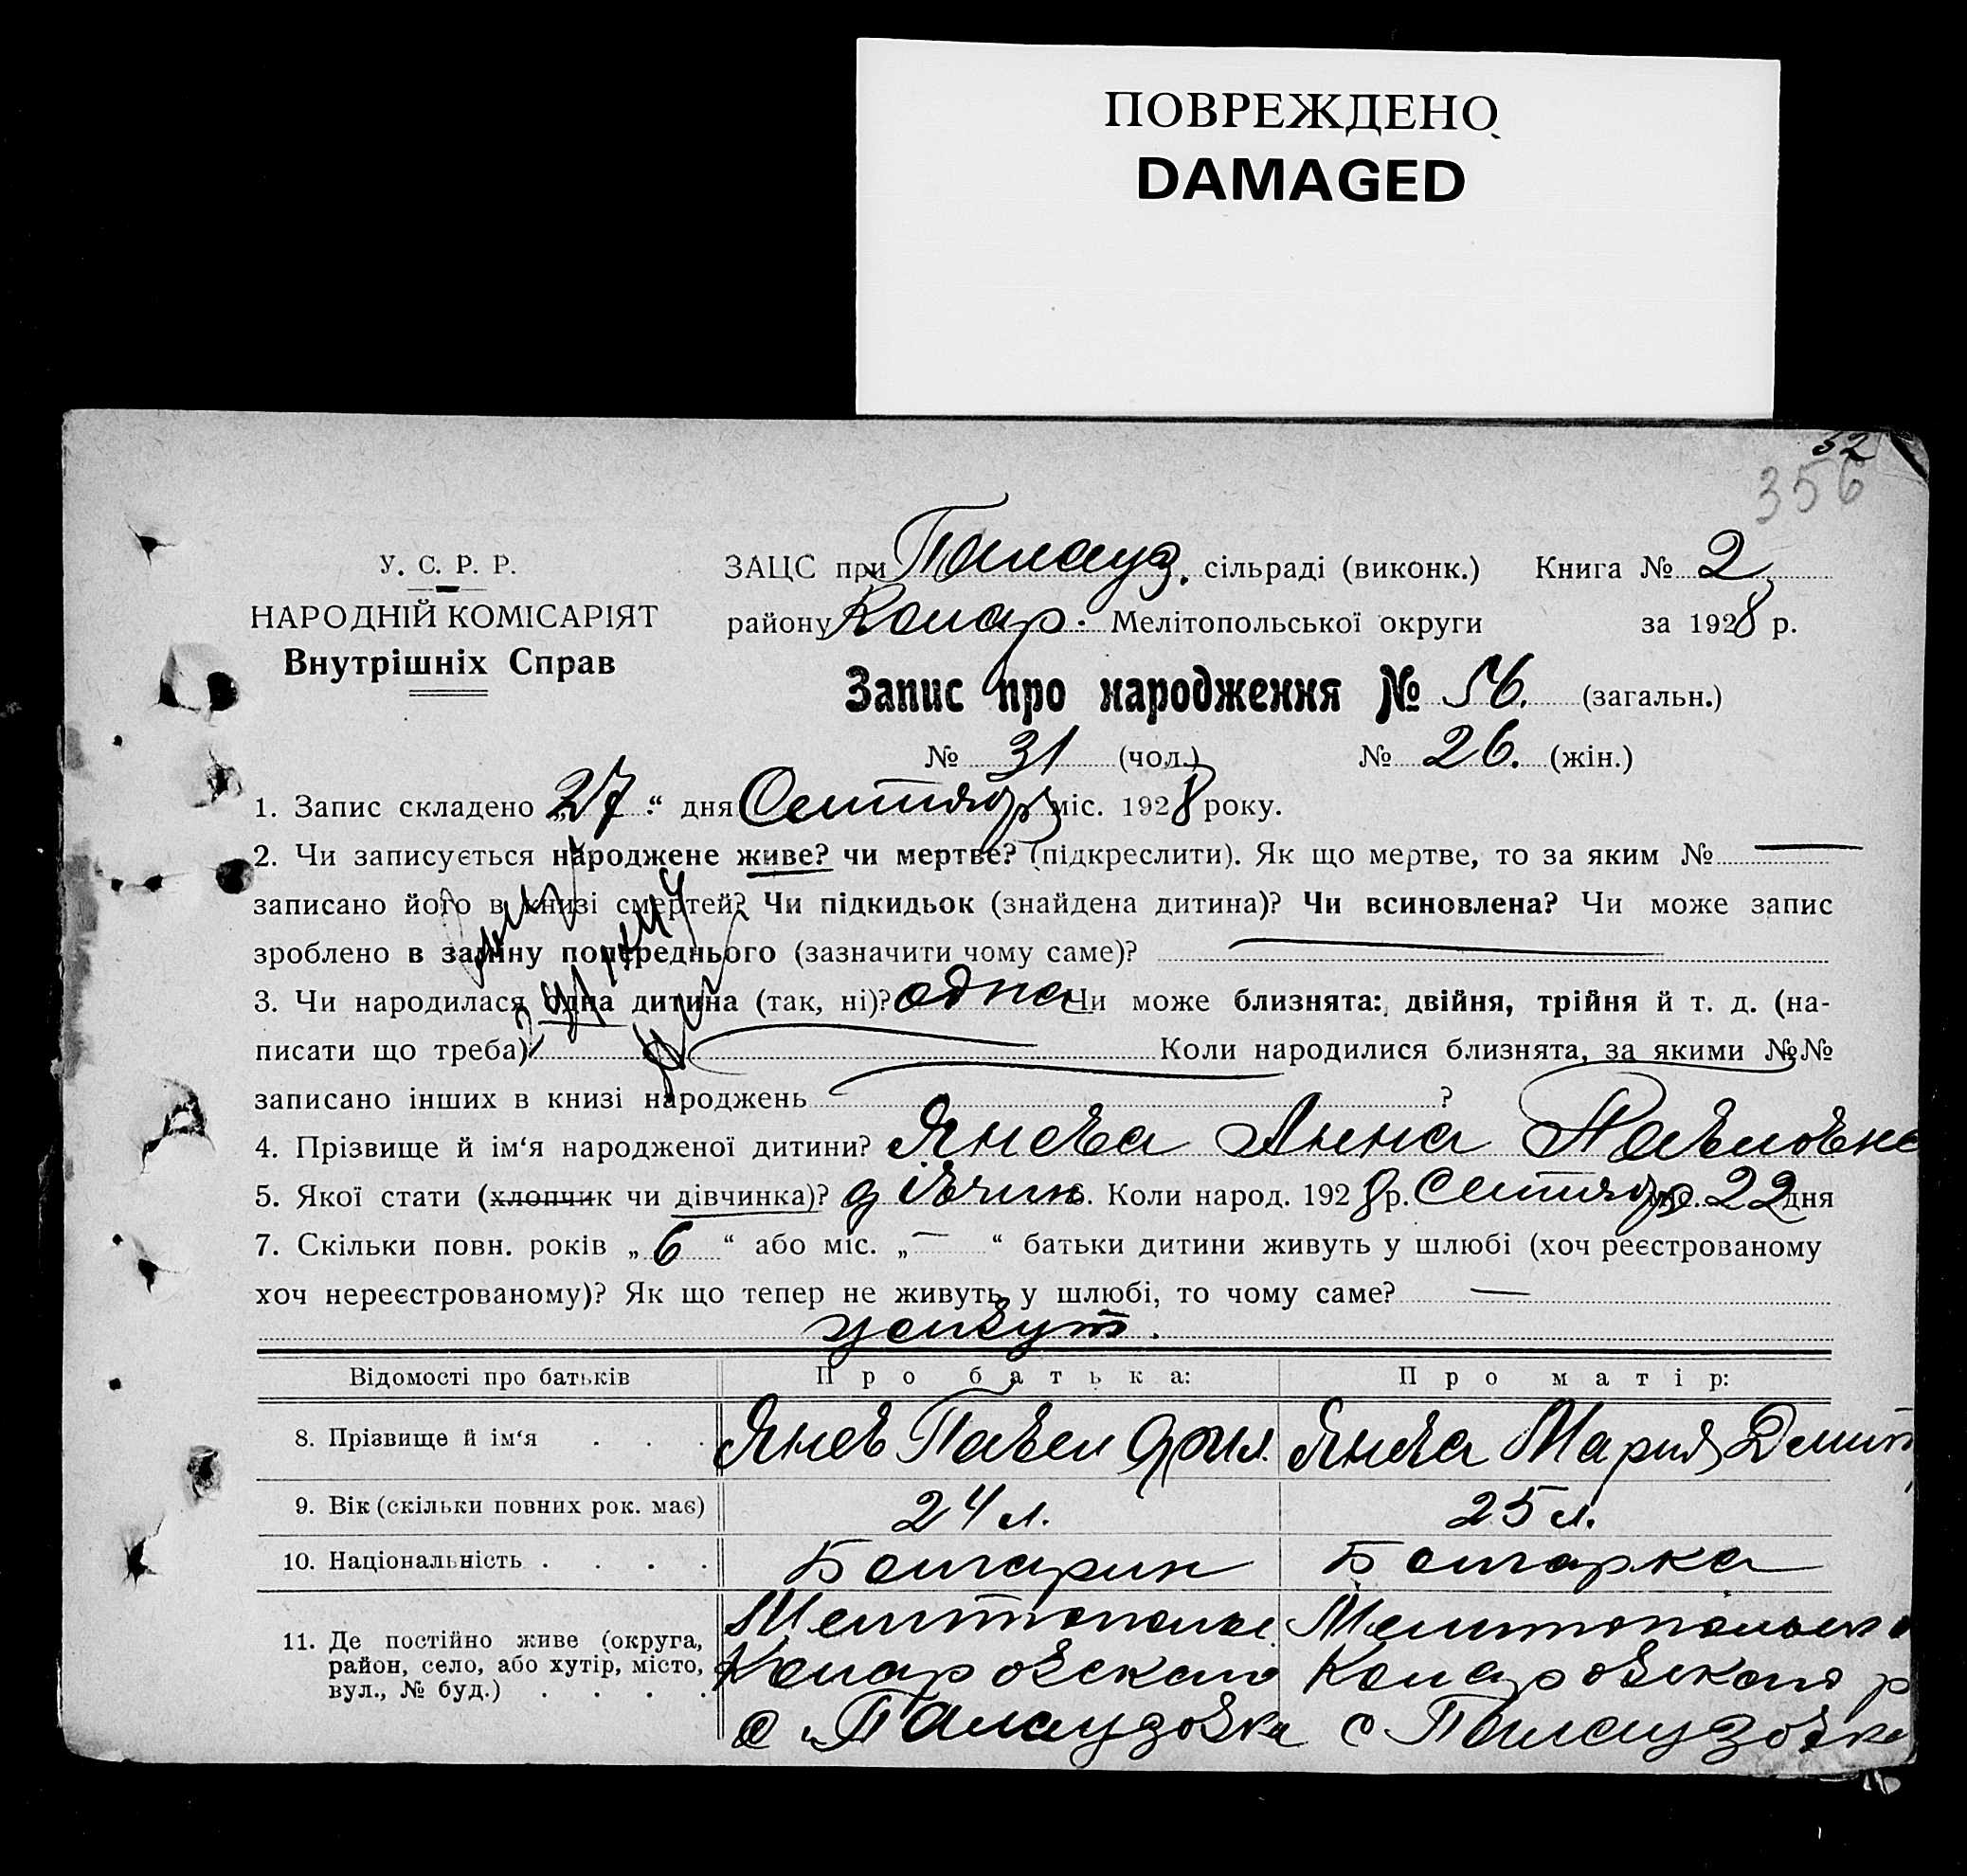 ПОВРЕЖДЕНО
DAMAGED
32
356
У. С. Р. Р.
НАРОДНІЙ КОМІСАРІЯТ
Внутрішніх Справ
ЗАЦС при Палауз. сільраді (виконк.) Книга № 2
району Комар. Мелітопольської округи за 1928 р.
Запис про народження № 56. (загальн.)
№ 31 (чол.) № 26. (жін.)
1. Запис складено „27“ дня Сентябр міс. 1928 року.
2. Чи записується народжене живе? чи мертве? (підкреслити). Як що мертве, то за яким № —
записано його в книзі смертей? Чи підкидьок (знайдена дитина)? Чи всиновлена? Чи може запис
зроблено в заміну попереднього (зазначити чому саме)?
3. Чи народилася одна дитина (так, ні)? одна Чи може близнята: двійня, трійня й т. д. (на-
писати що треба) Коли народилися близнята, за якими №№
записано інших в книзі народжень ?
4. Прізвище й ім‘я народженої дитини? Янева Анна Павловна
5. Якої стати (хлопчик чи дівчинка)? дівчин 6. Коли народ. 1928 р. Сентябр міс. 22 дня
7. Скільки повн. років „6“ або міс. „—“ батьки дитини живуть у шлюбі (хоч реєстрованому
хоч нереєстрованому)? Як що тепер не живуть у шлюбі, то чому саме? —
живут.
Відомості про батьків Про батька: Про матір:
8. Прізвище й ім‘я . . . Янев Павел Янева Мария Дмит
9. Вік (скільки повних рок. має) 24 л. 25 л.
10. Національність . . . . Болгарин Болгарка
11. Де постійно живе (округа,
район, село, або хутір, місто,
вул., № буд.) . . . .
Мелитополь. Мелитопольск
Комаровскаго Комаровскаго р
с Палаузовка с Палаузовка